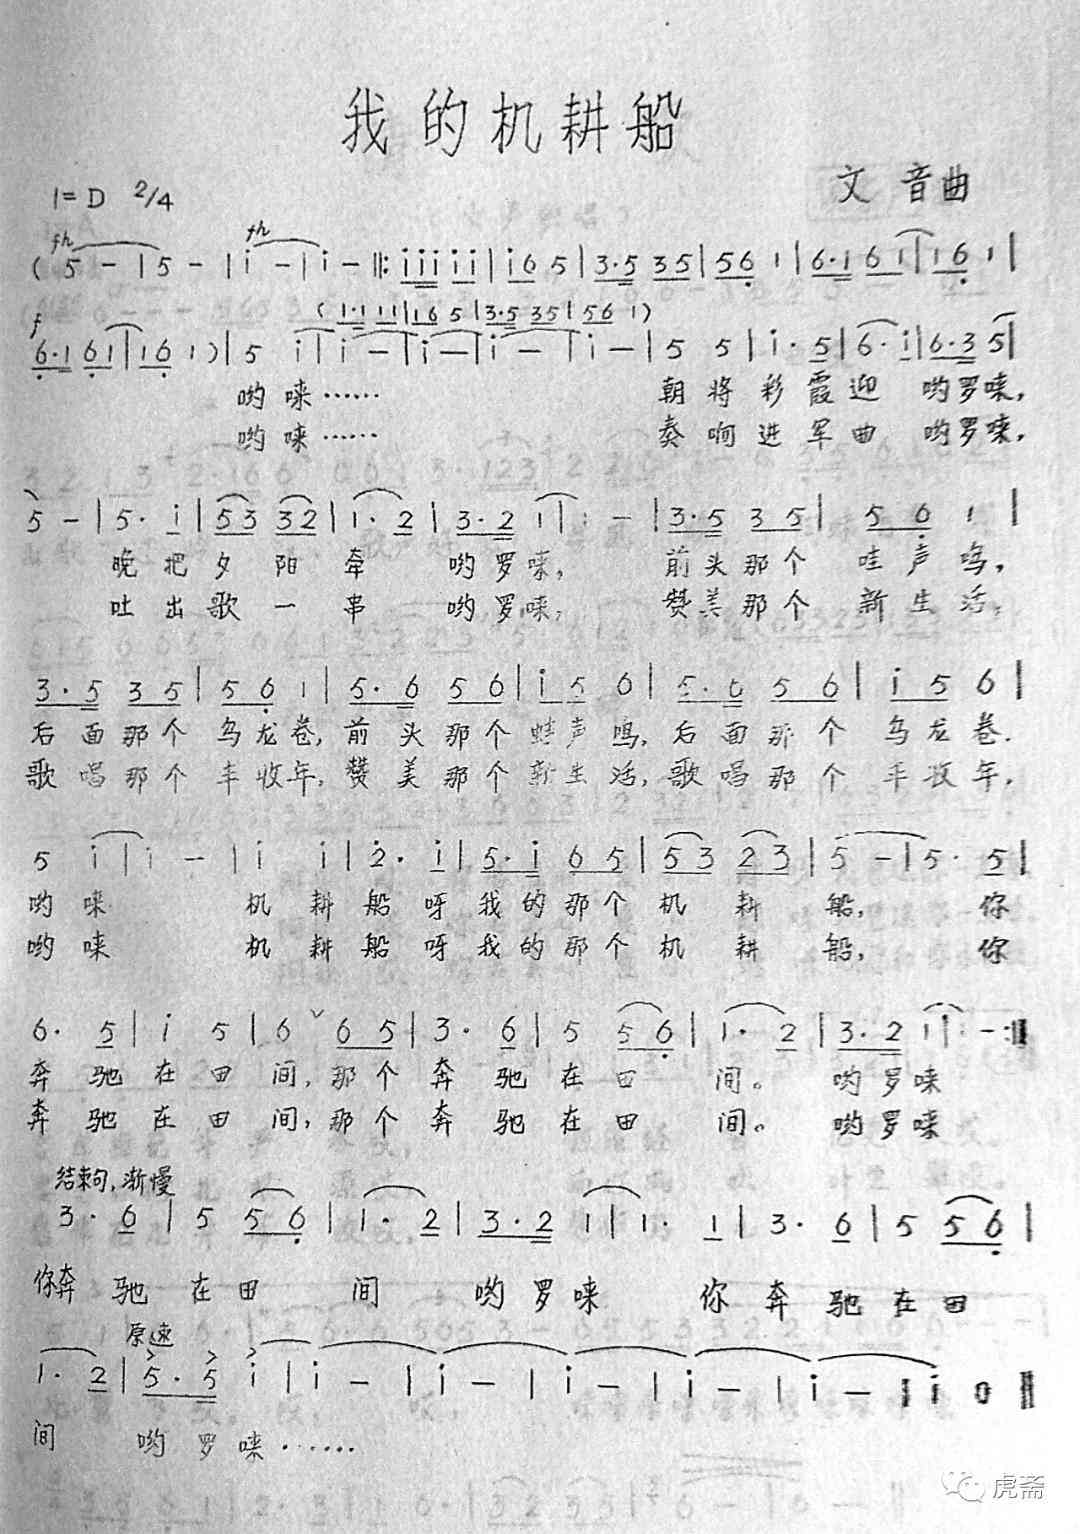 我的机耕船
1=D 2/4
文音曲
fp fp
( 5 - | 5 - | i - | i - ‖: i i i i i | i 6 5 | 3·5 3 5 | 5 6 1 | 6·1 6 1 | 1 6 1 |
( 1·1 1 1 | 1 6 5 | 3·5 3 5 | 5 6 1 )
f
6·1 6 1 | 1 6 1 ) | 5 i | i - | i - | i - | i - | 5 5 | i· 5 | 6· i | 6·3 5 |
哟唻…… 朝将彩霞迎 哟罗唻,
哟唻…… 奏响进军曲 哟罗唻,
5 - | 5· i | 5 3 3 2 | 1· 2 | 3·2 1 | 1 - | 3·5 3 5 | 5 6 1 |
晚把夕阳牵 哟罗唻, 前头那个哇声鸣,
吐出歌一串 哟罗唻, 赞美那个新生活,
3·5 3 5 | 5 6 1 | 5·6 5 6 | i 5 6 | 5·6 5 6 | i 5 6 |
后面那个乌龙卷, 前头那个蛙声鸣, 后面那个乌龙卷.
歌唱那个丰收年, 赞美那个新生活, 歌唱那个丰收年.
5 i | i - | i i | 2· i | 5·i 6 5 | 5 3 2 3 | 5 - | 5· 5 |
哟唻 机耕船呀我的那个机耕船, 你
哟唻 机耕船呀我的那个机耕船, 你
6· 5 | i 5 | 6 ˇ 6 5 | 3· 6 | 5 5 6 | 1· 2 | 3·2 1 | 1 - :‖
奔驰在田间, 那个奔驰在田间。哟罗唻
奔驰在田间, 那个奔驰在田间。哟罗唻
结束句,渐慢
3· 6 | 5 5 6 | 1· 2 | 3·2 1 | 1· 1 | 3· 6 | 5 5 6 |
你奔驰在田间 哟罗唻 你奔驰在田
原速
1· 2 | 5·5 i | i - | i - | i - | i - | i - | i 0 ‖
间 哟罗唻……
虎斋